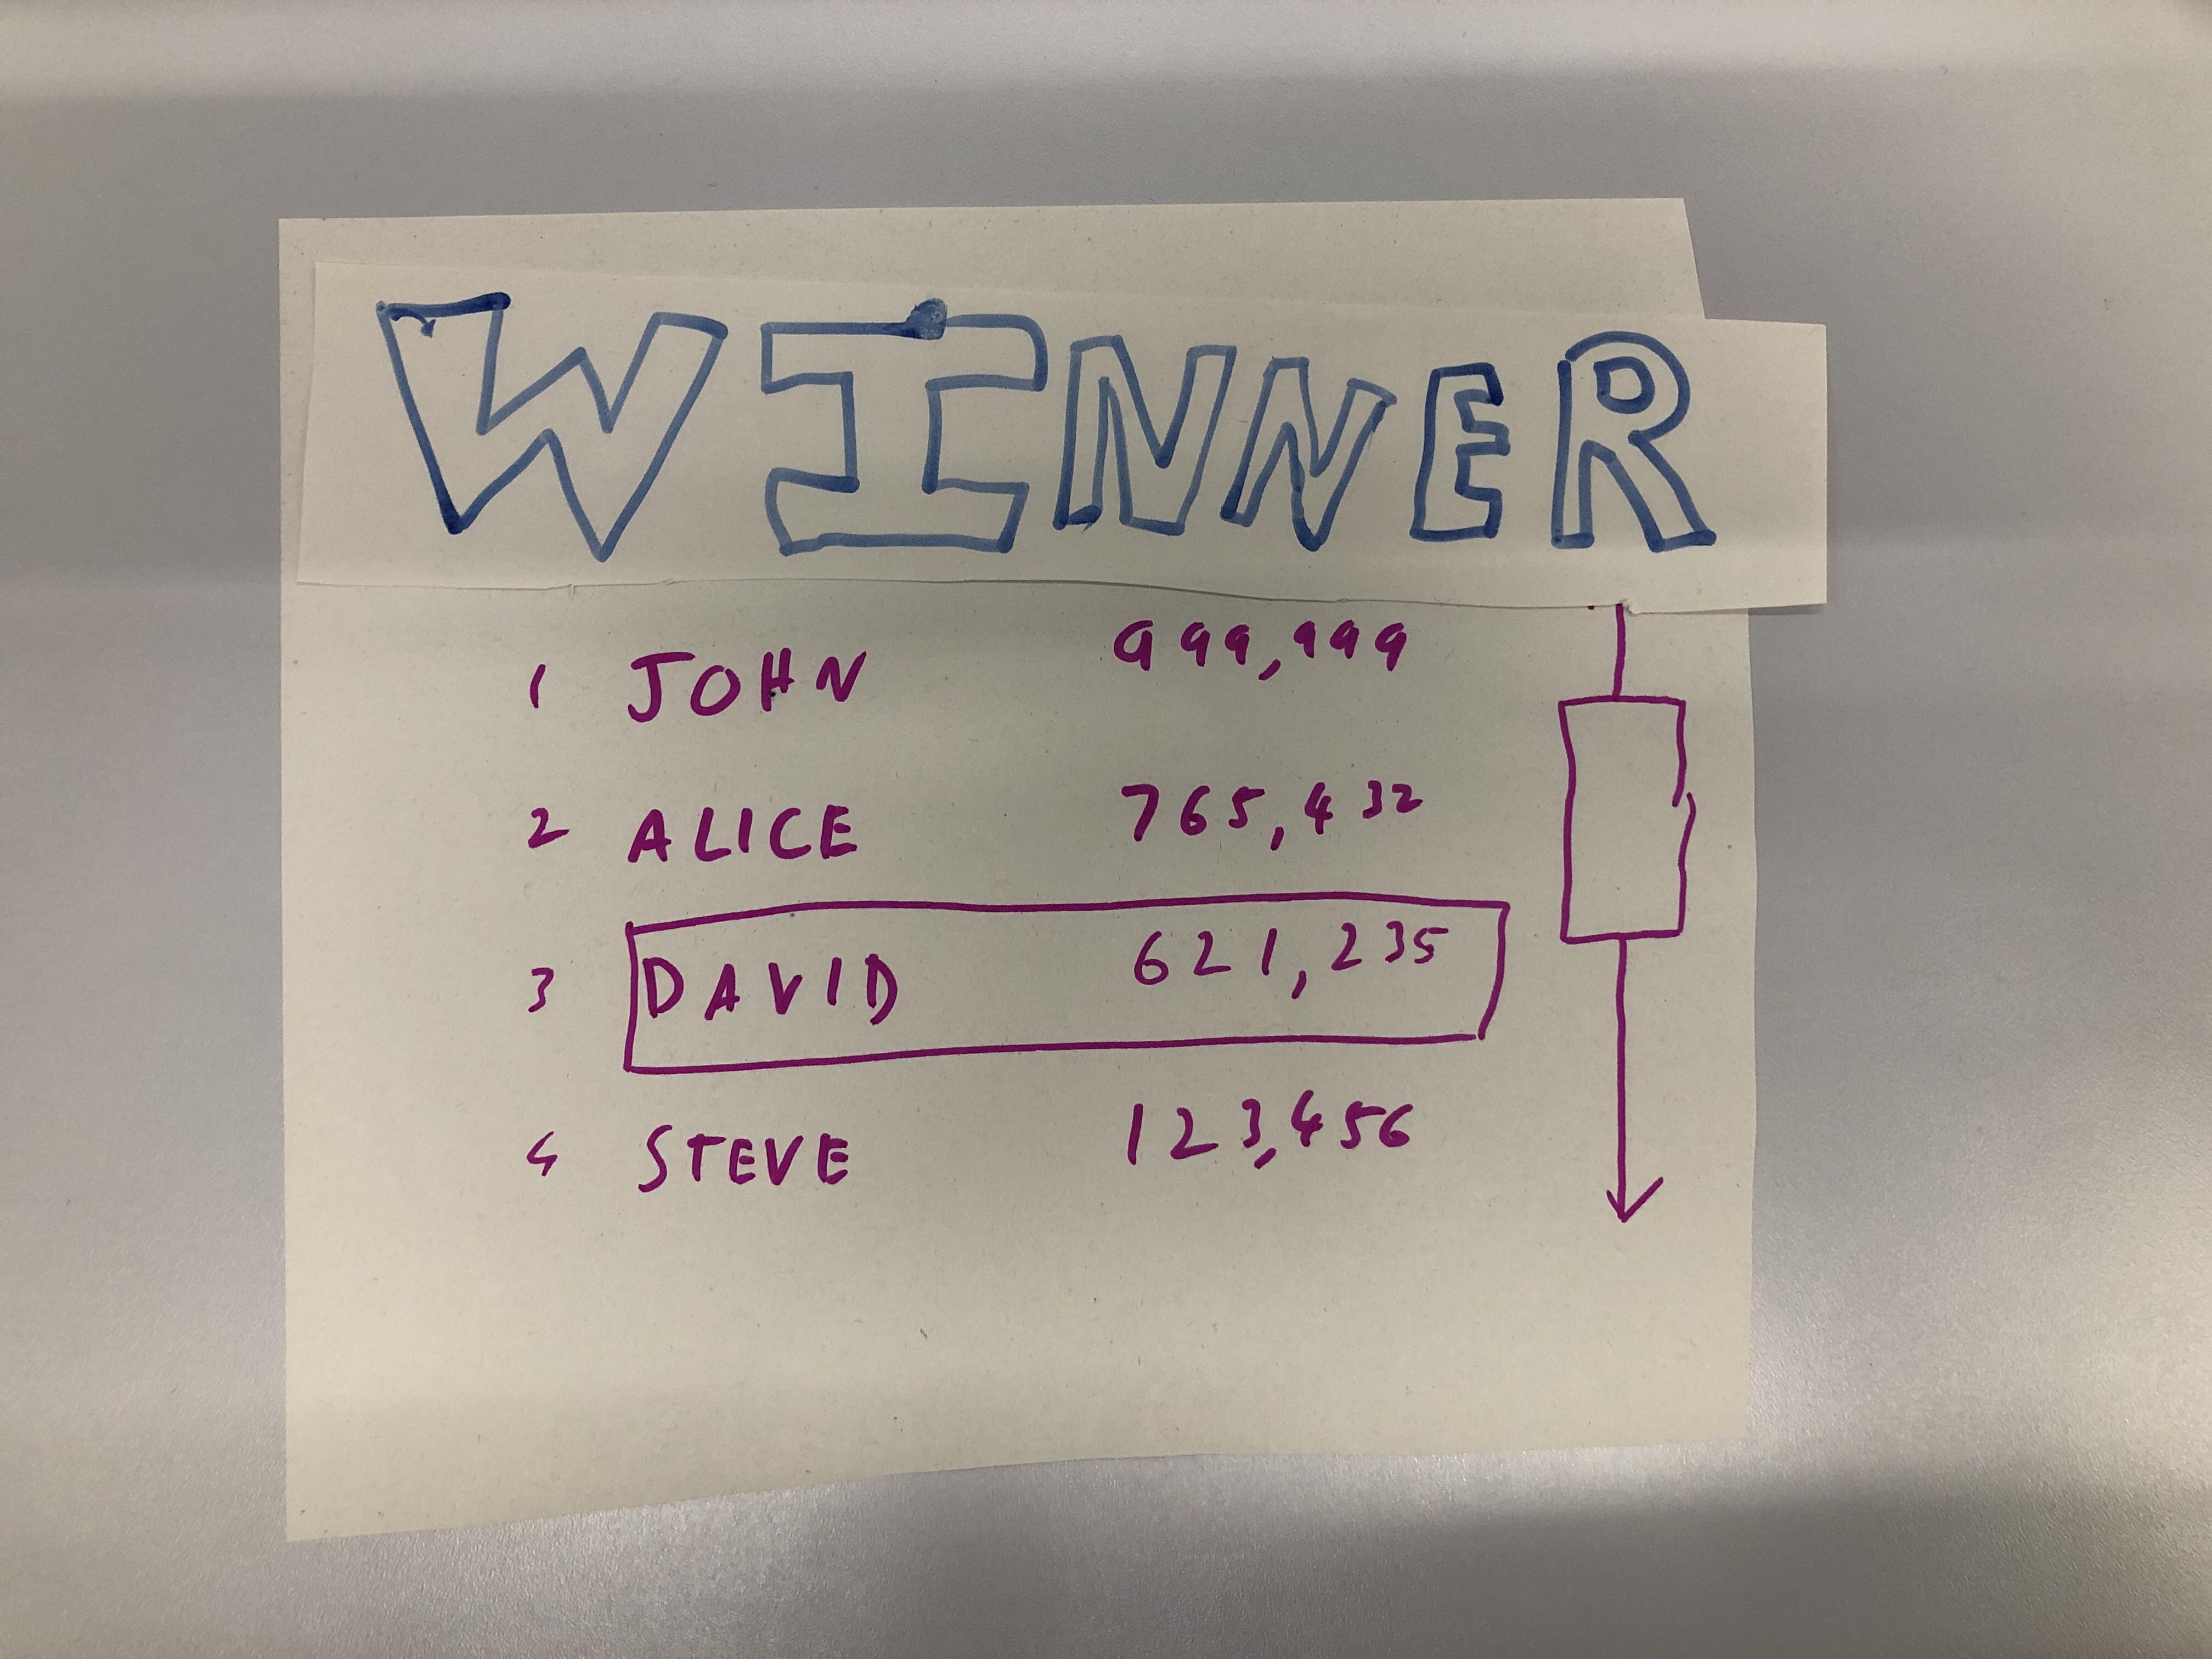 WINNER
1 JOHN 999,999
2 ALICE 765,432
3 DAVID 621,235
4 STEVE 123,456